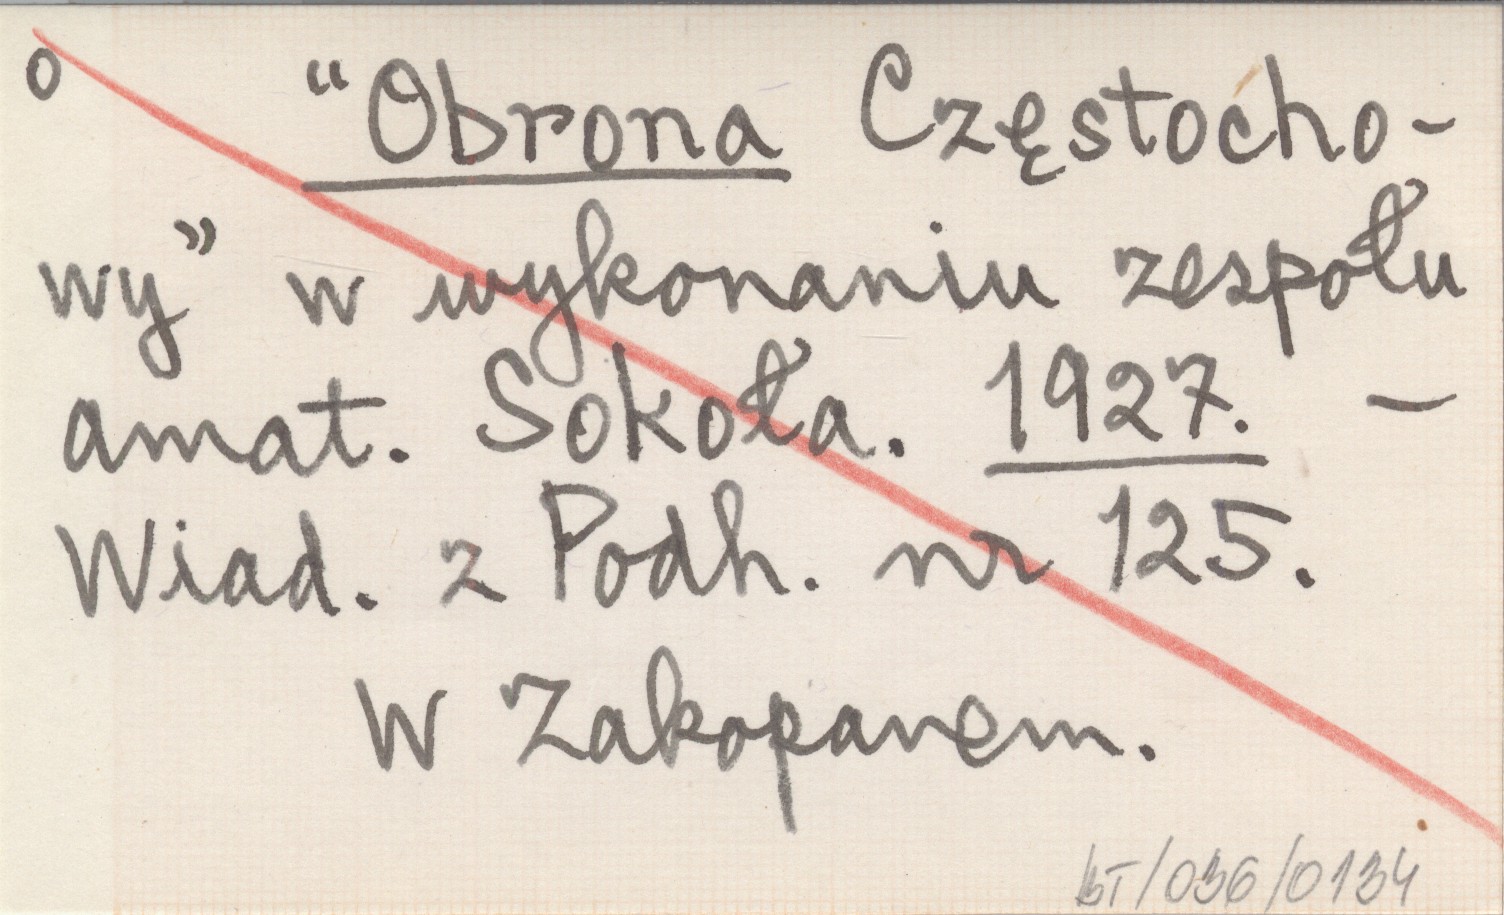 o "Obrona Częstocho-
wy" w wykonaniu zespołu
amat. Sokoła. 1927. –
Wiad. z Podh. nr 125.
W Zakopanem.
BT/036/0134